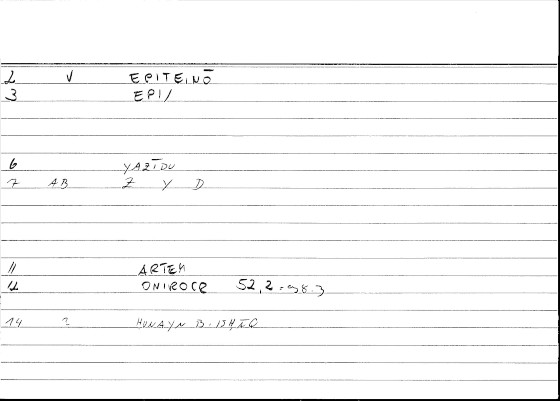 2 V EPITEINŌ
3 EPI/
6 YAZĪDU
7 AB Z Y D
11 ARTEM
12 ONIROCR 52,2 = 98.3
14 2 HUNAYN B. ISHĀQ